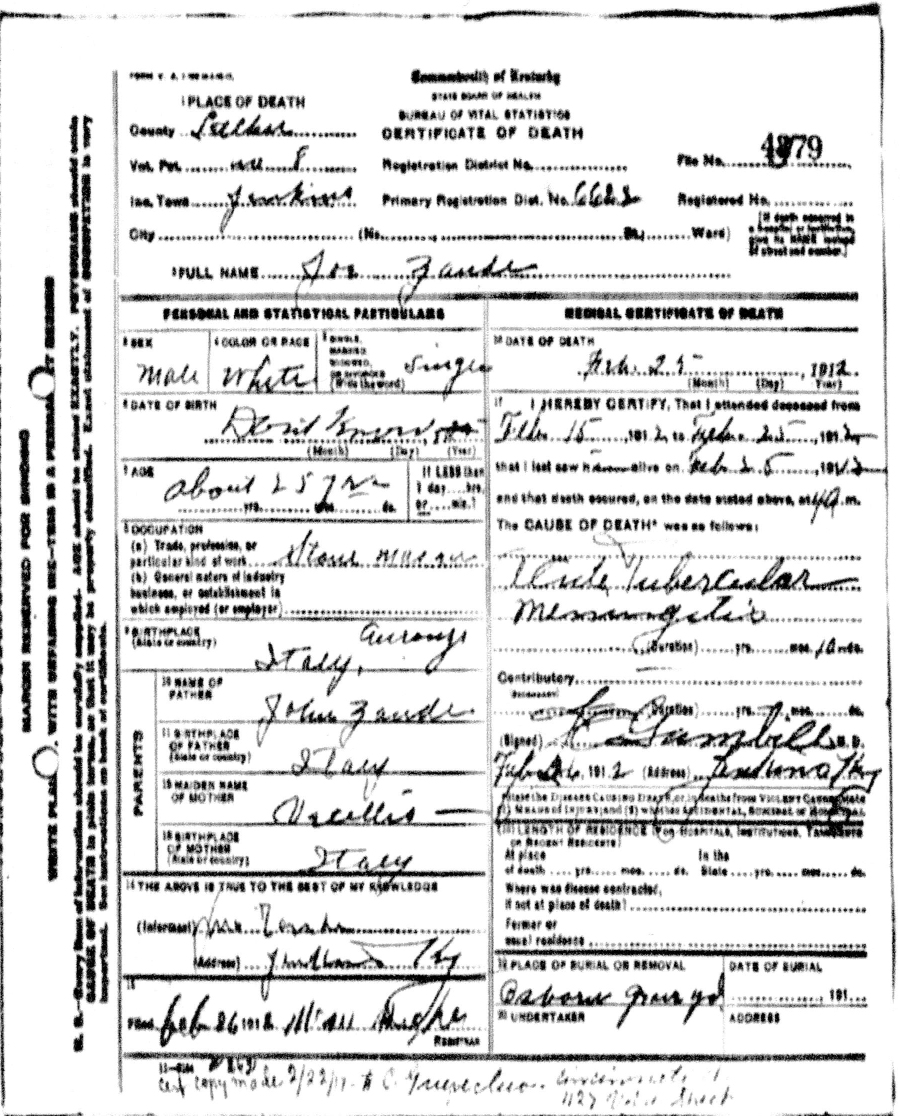 Commonwealth of Kentucky
STATE BOARD OF HEALTH
BUREAU OF VITAL STATISTICS
CERTIFICATE OF DEATH
1 PLACE OF DEATH
County
Vot. Pct. 8
Inc. Town Jenkins
City (No. St.; Ward)
Registration District No.
Primary Registration Dist. No. 6622
File No. 4379
Registered No.
[If death occurred in a hospital or institution, give its NAME instead of street and number.]
2 FULL NAME Joe Zande
PERSONAL AND STATISTICAL PARTICULARS
3 SEX
Male
4 COLOR OR RACE
White
5 SINGLE, MARRIED WIDOWED, OR DIVORCED (Write the word)
6 DATE OF BIRTH
(Month) (Day) (Year)
7 AGE
about 25 yrs
yrs. mos. ds.
If LESS than 1 day hrs. or min.?
8 OCCUPATION
(a) Trade, profession, or particular kind of work Stone mason
(b) General nature of industry business, or establishment in which employed (or employer)
9 BIRTHPLACE
(State or country)
Italy,
10 NAME OF FATHER
John Zande
11 BIRTHPLACE OF FATHER
(State or country)
Italy
12 MAIDEN NAME OF MOTHER
13 BIRTHPLACE OF MOTHER
(State or country)
Italy
PARENTS
14 THE ABOVE IS TRUE TO THE BEST OF MY KNOWLEDGE
(Informant)
(Address) Ky
15
Filed Feb 26 1912
REGISTRAR
MEDICAL CERTIFICATE OF DEATH
16 DATE OF DEATH
Feb. 25, 1912
(Month) (Day) (Year)
17 I HEREBY CERTIFY, That I attended deceased from
Feb 15, 1912 to Feb 25, 1912
that I last saw him alive on Feb 25, 1912
and that death occured, on the date stated above, at m.
The CAUSE OF DEATH* was as follows:
Acute Tubercular
Meningitis
(Duration) yrs. mos. 10 ds.
Contributory
(Duration) yrs. mos. ds.
(Signed) Gambill M.D.
Feb 26, 1912 (Address) Ky
*State the DISEASE CAUSING DEATH, or, in deaths from VIOLENT CAUSES, state
(1) MEANS OF INJURY; and (2) whether ACCIDENTAL, SUICIDAL OR HOMICIDAL
18 LENGTH OF RESIDENCE (FOR HOSPITALS, INSTITUTIONS, TRANSIENTS
OR RECENT RESIDENTS)
At place of death yrs. mos. ds.
In the State yrs. mos. ds.
Where was disease contracted,
if not at place of death?
Former or
usual residence
19 PLACE OF BURIAL OR REMOVAL
DATE OF BURIAL
191
20 UNDERTAKER
ADDRESS
11-3184
Cert copy made 2/22/17
MARGIN RESERVED FOR BINDING
WRITE PLAINLY, WITH UNFADING INK—THIS IS A PERMANENT RECORD
N. B.—Every item of information should be carefully supplied. AGE should be stated EXACTLY. PHYSICIANS should state
CAUSE OF DEATH in plain terms, so that it may be properly classified. Exact statement of OCCUPATION is very
important. See instructions on back of certificate.